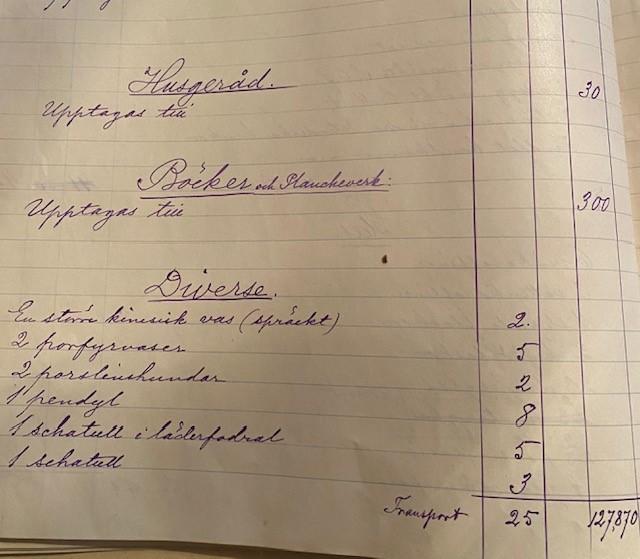 Husgeråd.
Upptagas till 30
Böcker och Plancheverk:
Upptagas till 300
Diverse.
En större kinesisk vas (spräckt) 2.
2 porfyrvaser 5
2 porslinshundar 2
1 pendyl 8
1 schatull i läderfodral 5
1 schatull 3
Transport 25 127,870